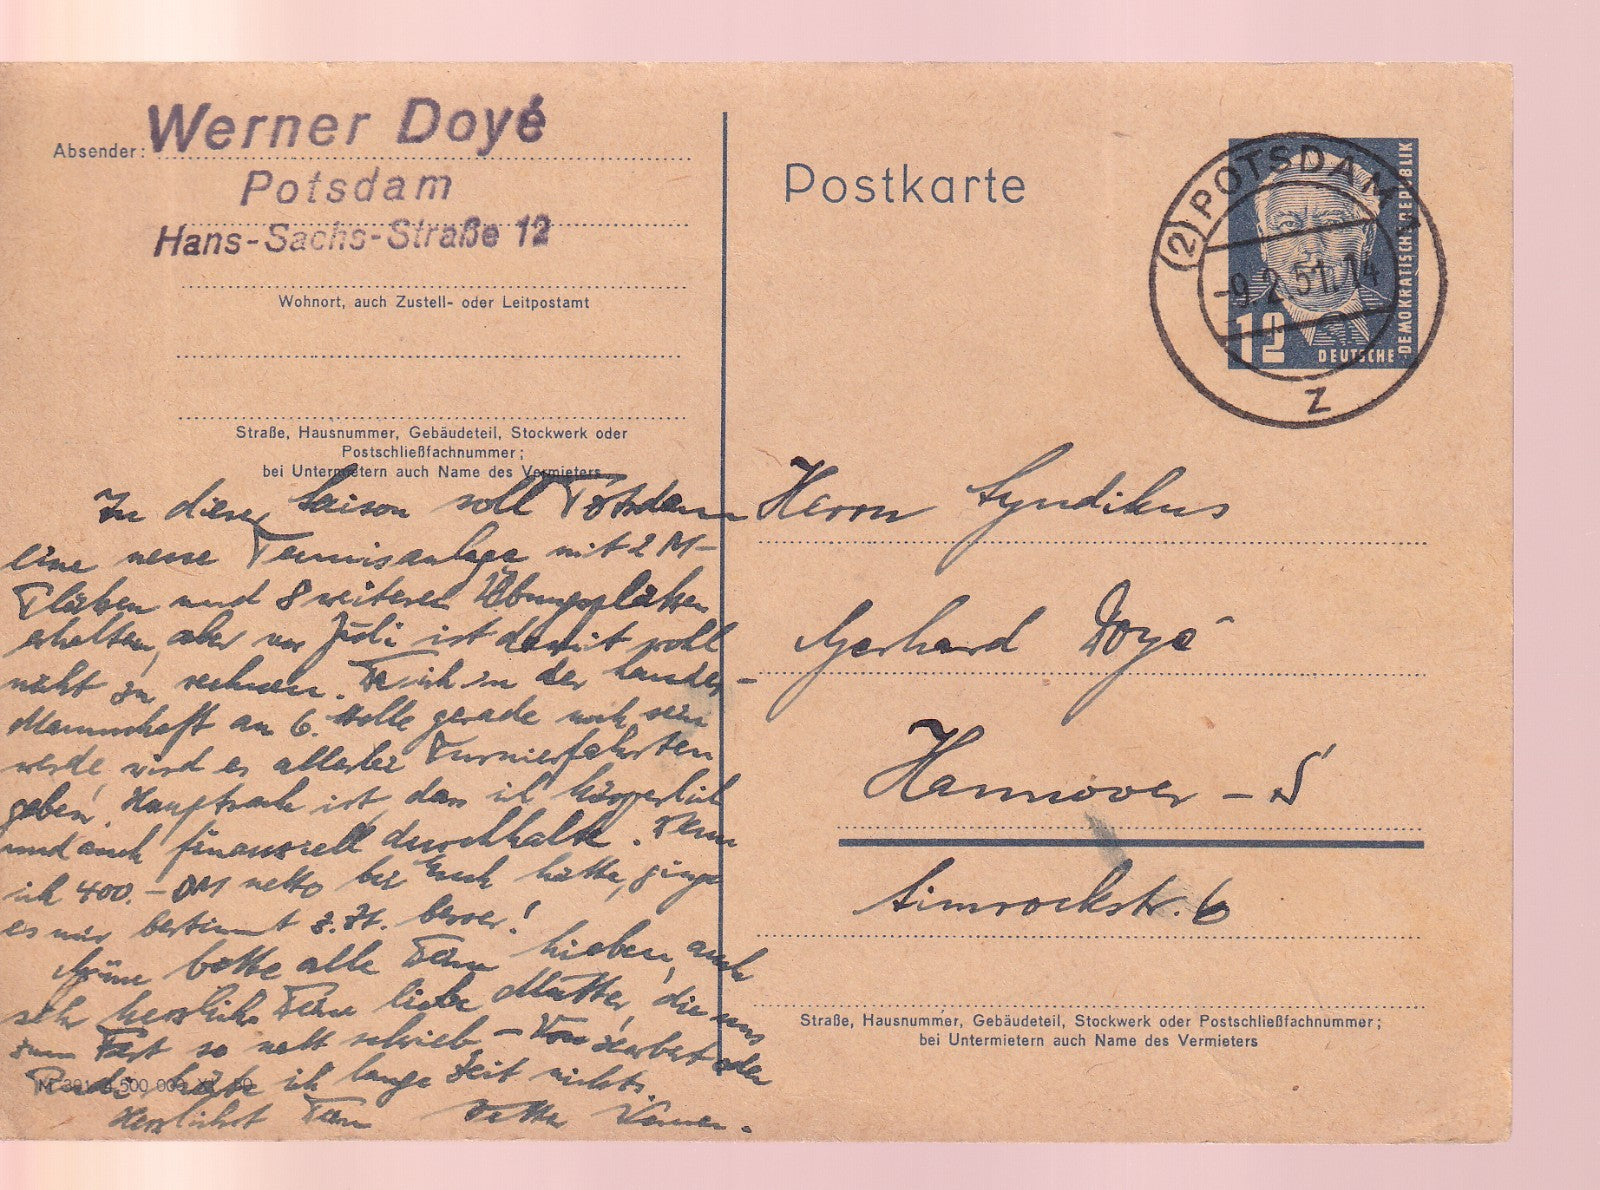 Absender:
Werner Doyé
Potsdam
Hans-Sachs-Straße 12
Wohnort, auch Zustell- oder Leitpostamt
Straße, Hausnummer, Gebäudeteil, Stockwerk oder
Postschließfachnummer;
bei Untermietern auch Name des Vermieters
In dieser Saison soll Potsdam
eine neue Tennisanlage mit 2 M-
Plätzen und 8 weiteren Übungsplätzen
erhalten, aber vor Juli ist damit wohl
nicht zu rechnen. Da ich in der Landes-
Mannschaft an 6. Stelle gerade noch sein
werde, wird es allerlei Turnierfahrten
geben. Hauptsache ist, dass ich körperlich
und auch finanziell durchhalte. Wenn
ich 400.- DM netto bei Euch hätte, ginge
es mir bestimmt z. Zt. besser!
Grüne bitte alle Deine Lieben, auch
sehr herzlich Deine liebe Mutter, die uns
zum Fest so nett schrieb - Von Herbert oder
Rudi hörte ich lange Zeit nichts.
Herzlichst Dein Vetter Werner.
Postkarte
(2) POTSDAM
-9.2.51.-14
z
12
DEUTSCHE
DEMOKRATISCHE REPUBLIK
Herrn Syndikus
Gerhard Doyé
Hannover - S
Simrockstr. 6
Straße, Hausnummer, Gebäudeteil, Stockwerk oder Postschließfachnummer;
bei Untermietern auch Name des Vermieters